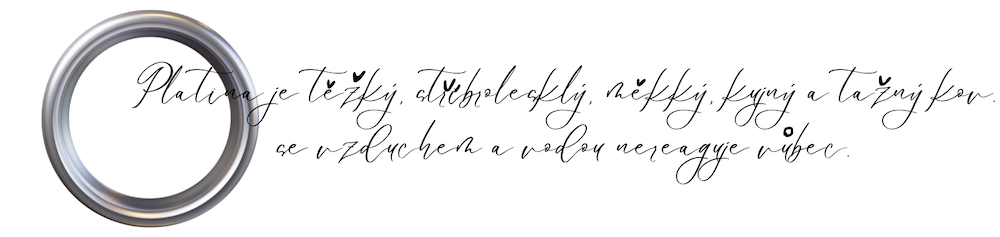 Platina je těžký, stříbrolesklý, měkký, kujný a tažný kov.
se vzduchem a vodou nereaguje vůbec.